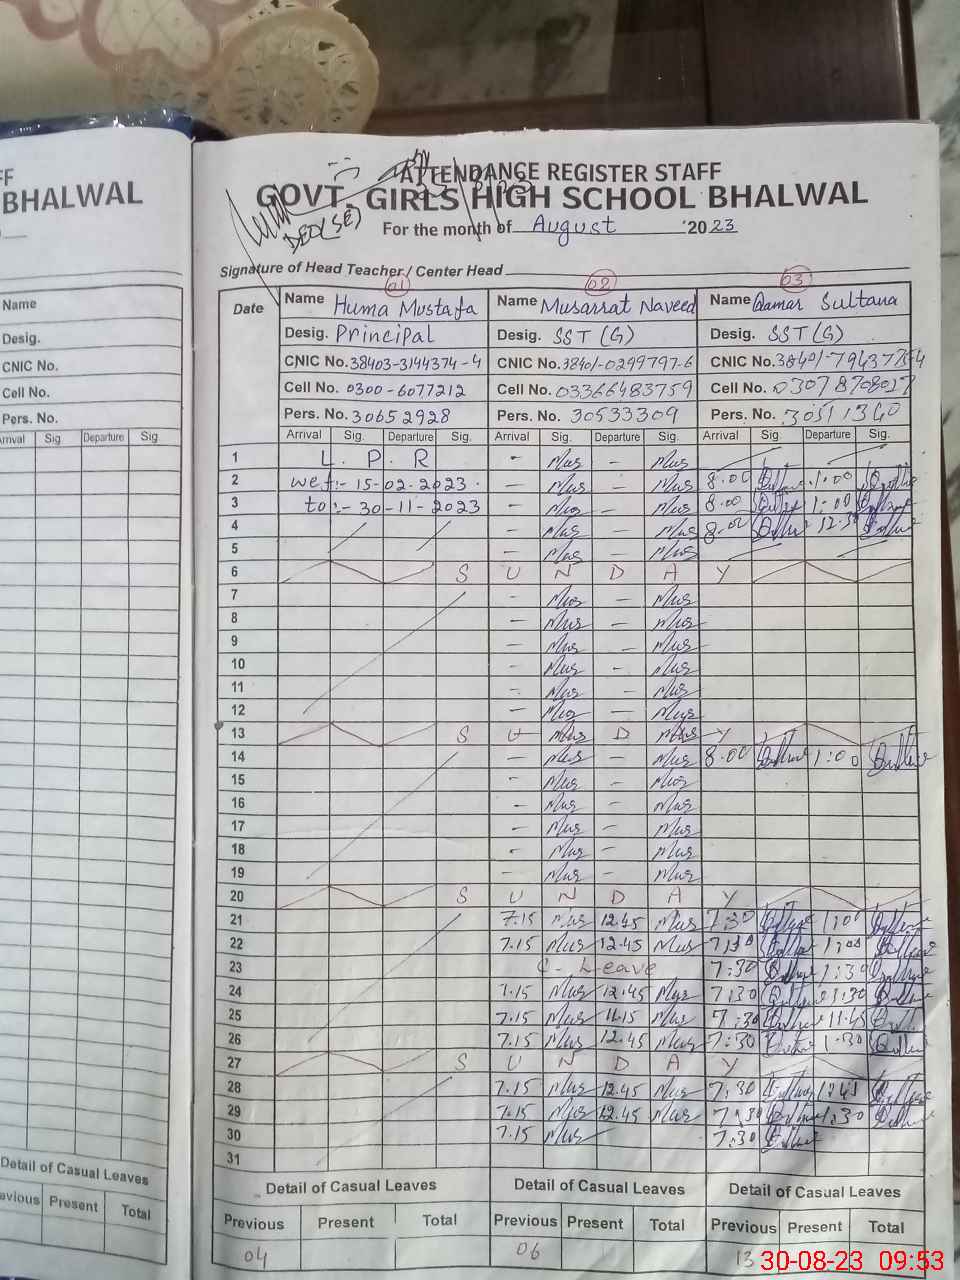 FF
BHALWAL
Name
Desig.
CNIC No.
Cell No.
Pers. No.
Arrival Sig. Departure Sig.
Detail of Casual Leaves
Previous Present Total
ATTENDANCE REGISTER STAFF
GOVT. GIRLS HIGH SCHOOL BHALWAL
DEO(SE)
For the month of August 2023
Signature of Head Teacher / Center Head
01 02 03
Date Name Huma Mustafa Name Musarrat Naveed Name Qamar Sultana
Desig. Principal Desig. SST (G) Desig. SST (G)
CNIC No. 38403-3144374-4 CNIC No. 38401-0299797-6 CNIC No.
Cell No. 0300-6077212 Cell No. 03366483759 Cell No. 03078708017
Pers. No. 30652928 Pers. No. 30533309 Pers. No.
Arrival Sig. Departure Sig. Arrival Sig. Departure Sig. Arrival Sig. Departure Sig.
1 L. P. R - Mus - Mus
2 wef:- 15-02-2023. - Mus - Mus 8.00 1:00
3 to:- 30-11-2023 - Mus - Mus 8.00 1:00
4 - Mus - Mus 8.00 12.30
5 - Mus - Mus
6 S U N D A Y
7 - Mus - Mus
8 - Mus - Mus
9 - Mus - Mus
10 - Mus - Mus
11 - Mus - Mus
12 - Mus - Mus
13 S U Mus D Mus Y
14 - Mus - Mus 8.00 1:00
15 - Mus - Mus
16 - Mus - Mus
17 - Mus - Mus
18 - Mus - Mus
19 - Mus - Mus
20 S U N D A Y
21 7.15 Mus 12.45 Mus 7:30 1:00
22 7.15 Mus 12.45 Mus 7:30 1:00
23 C- Leave 7:30 1:30
24 7.15 Mus 12.45 Mus 7:30 1:30
25 7.15 Mus 11.15 Mus 7:30 11.45
26 7.15 Mus 12.45 Mus 7:30 1:30
27 S U N D A Y
28 7.15 Mus 12.45 Mus 7:30 1:45
29 7.15 Mus 12.45 Mus 7:30 1:30
30 7.15 Mus 7:30
31
Detail of Casual Leaves Detail of Casual Leaves Detail of Casual Leaves
Previous Present Total Previous Present Total Previous Present Total
04 06 13
30-08-23 09:53